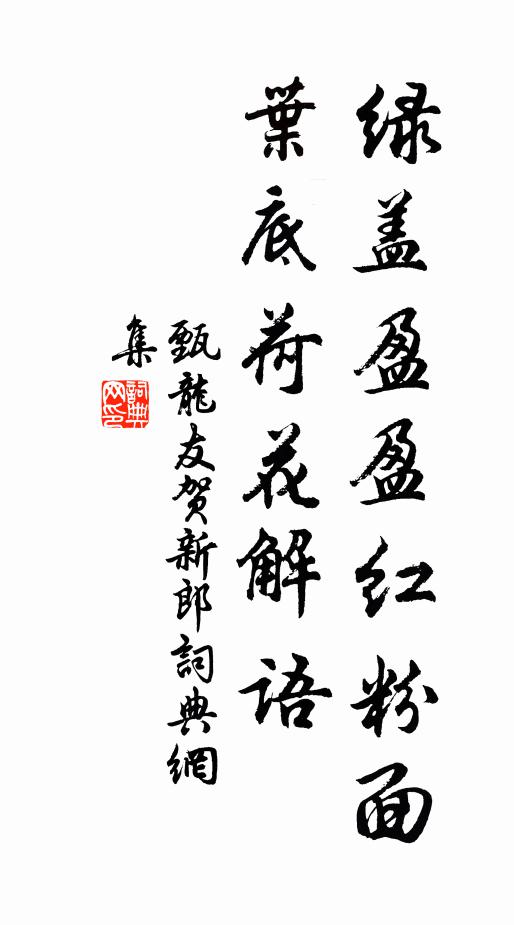 绿盖盈盈红粉面
葉底荷花解语
甄龍友贺新郎詞典網
集
詞典網印